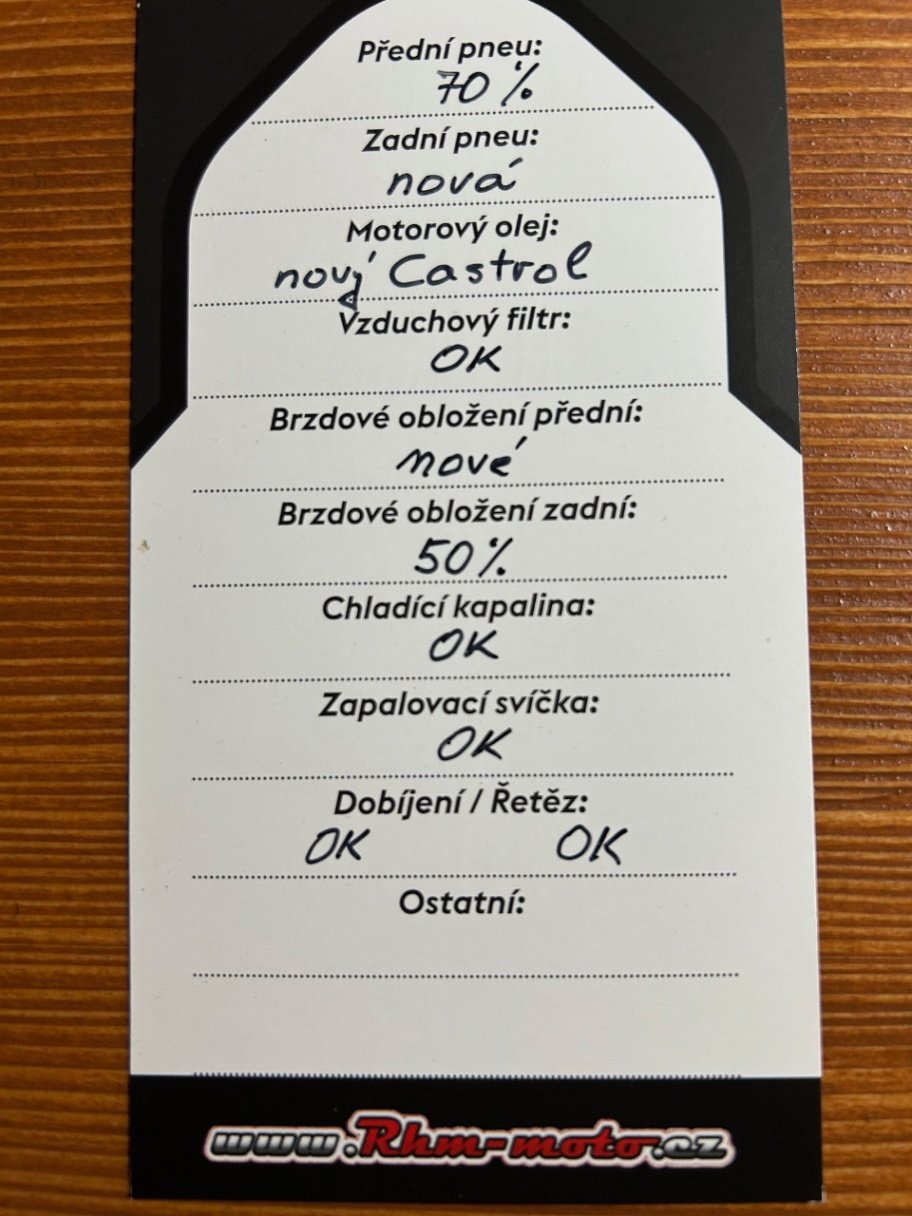 Přední pneu:
70%
Zadní pneu:
nová
Motorový olej:
nový Castrol
Vzduchový filtr:
OK
Brzdové obložení přední:
nové
Brzdové obložení zadní:
50%
Chladící kapalina:
OK
Zapalovací svíčka:
OK
Dobíjení / Řetěz:
OK OK
Ostatní:
www.Rhm-moto.cz